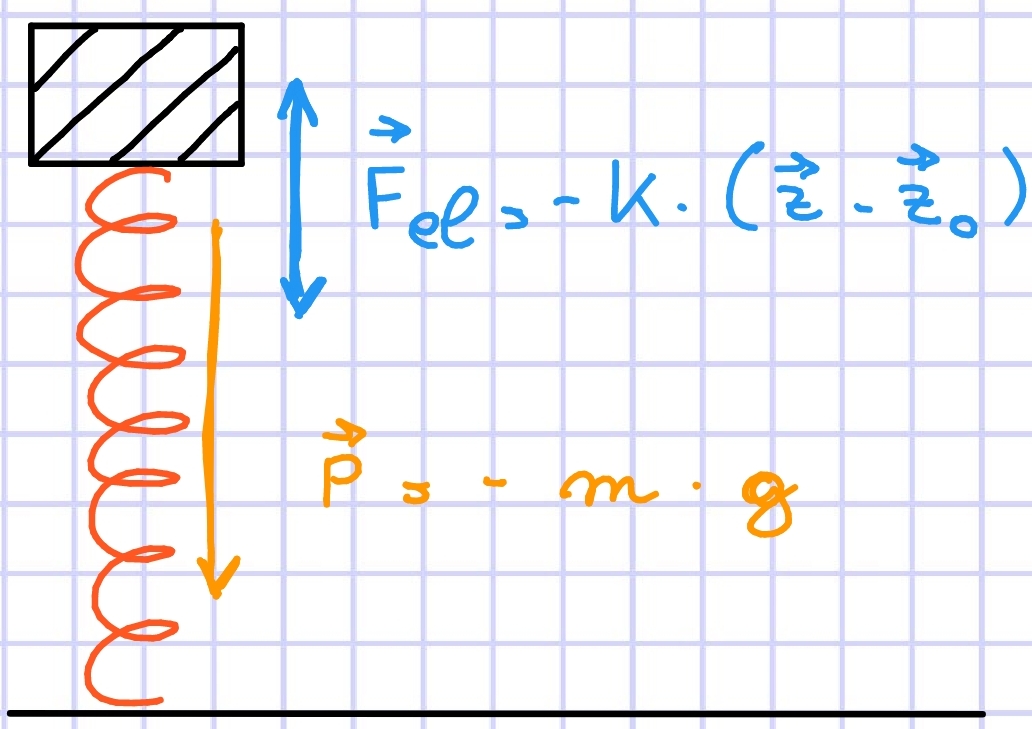 F⃗el = - K · (z⃗ - z⃗₀)
P⃗ = - m · g